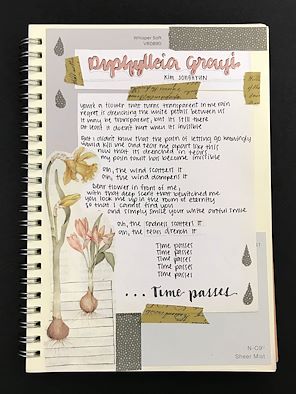 Whisper Soft
VR089D
Diphylleia Grayi
Kim Jonghyun
You're a flower that turns transparent in the rain
regret is drenching the white petals between us
It may be transparent, but it's still there
at least it doesn't hurt when it's invisible
But I didn't know that the pain of letting go knowingly
would kill me and tear me apart like this
now that its drenched in tears
my pain too has become invisible
oh, the wind scatters it
oh, the wind dampens it
Dear flower in front of me,
with that deep scent that bewitched me
you lock me up in the room of eternity
so that I cannot find you
and simply smile your white cruel smile
oh, the sadness scatters it
oh, the tears drench it
Time passes
Time passes
Time passes
Time passes
Time passes
... Time passes
N-C9
Sheer Mist